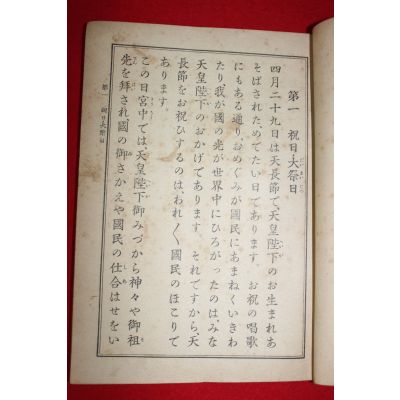 第一 祝日大祭日
四月二十九日は天長節で、天皇陛下のお生まれあ
そばされためでたい日であります。お祝の唱歌
にもある通りおめぐみが國民にあまねくいきわ
たり我が國の光が世界中にひろがったのは、みな
天皇陛下のおかげであります。それですから、天
長節をお祝ひするのはわれ〱國民のほこりで
あります。
この日宮中では、天皇陛下御みづから神々や御祖
先を拜され國の御さかえや國民の仕合はせをい
第一 祝日大祭日